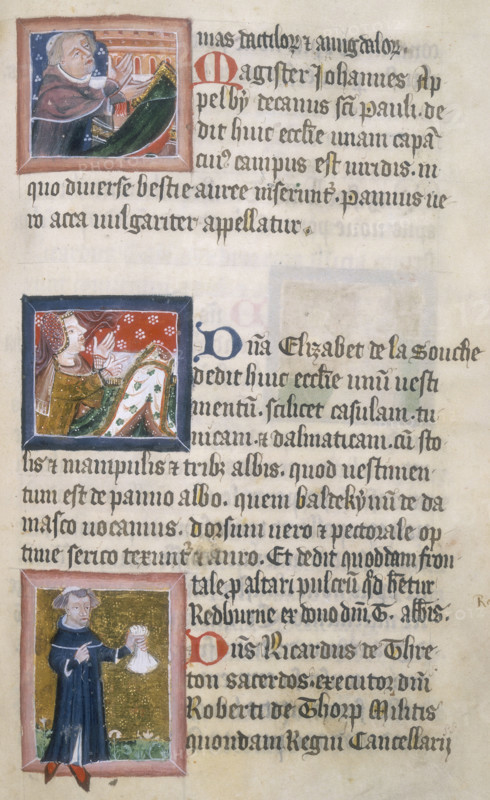 mas dactiloꝝ ⁊ amigdaloꝝ.
Magister Johannes Ap
pelby decanus sc̄i Pauli. de
dit huic eccl̄ie unam capā
cui⁹ campus est viridis. in
quo diverse bestie auree inserunt̉. pannus ve
ro acca vulgariter appellatur.
Dn̄a Elizabet de la Souche
dedit huic eccl̄ie unū vesti
mentū. scilicet casulam. tu
nicam. ⁊ dalmaticam. cū sto
lis ⁊ manipulis ⁊ tribꝫ albis. quod vestimen
tum est de panno albo. quem baldekynū de da
masco vocamus. dorsum vero ⁊ pectorale op
time serico texunt̉ ⁊ auro. Et dedit quoddam fron
tale ꝓ altari pulcrū qd̄ hetur
Redburne ex dono dn̄i. T. abb̄is.
Dn̄s Ricardus de Thre
ton sacerdos. executor dn̄i
Roberti de Thorp Militis
quondam Regni Cancellarij